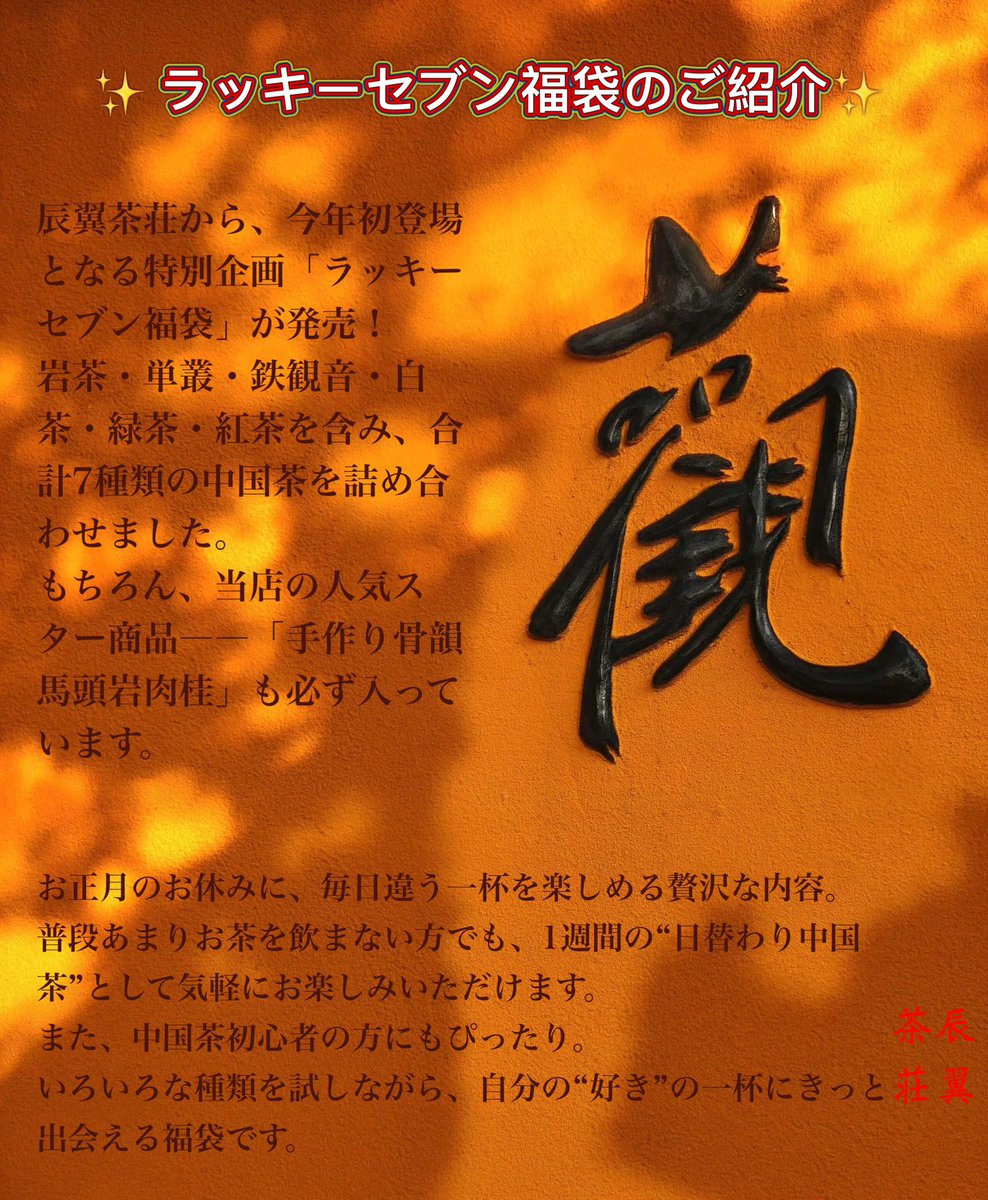 ✨ ラッキーセブン福袋のご紹介✨
辰翼茶荘から、今年初登場
となる特別企画「ラッキー
セブン福袋」が発売！
岩茶・単叢・鉄観音・白
茶・緑茶・紅茶を含み、合
計7種類の中国茶を詰め合
わせました。
もちろん、当店の人気ス
ター商品——「手作り骨韻
馬頭岩肉桂」も必ず入って
います。
觀
お正月のお休みに、毎日違う一杯を楽しめる贅沢な内容。
普段あまりお茶を飲まない方でも、1週間の“日替わり中国
茶”として気軽にお楽しみいただけます。
また、中国茶初心者の方にもぴったり。
いろいろな種類を試しながら、自分の“好き”の一杯にきっと
出会える福袋です。
辰翼
茶荘